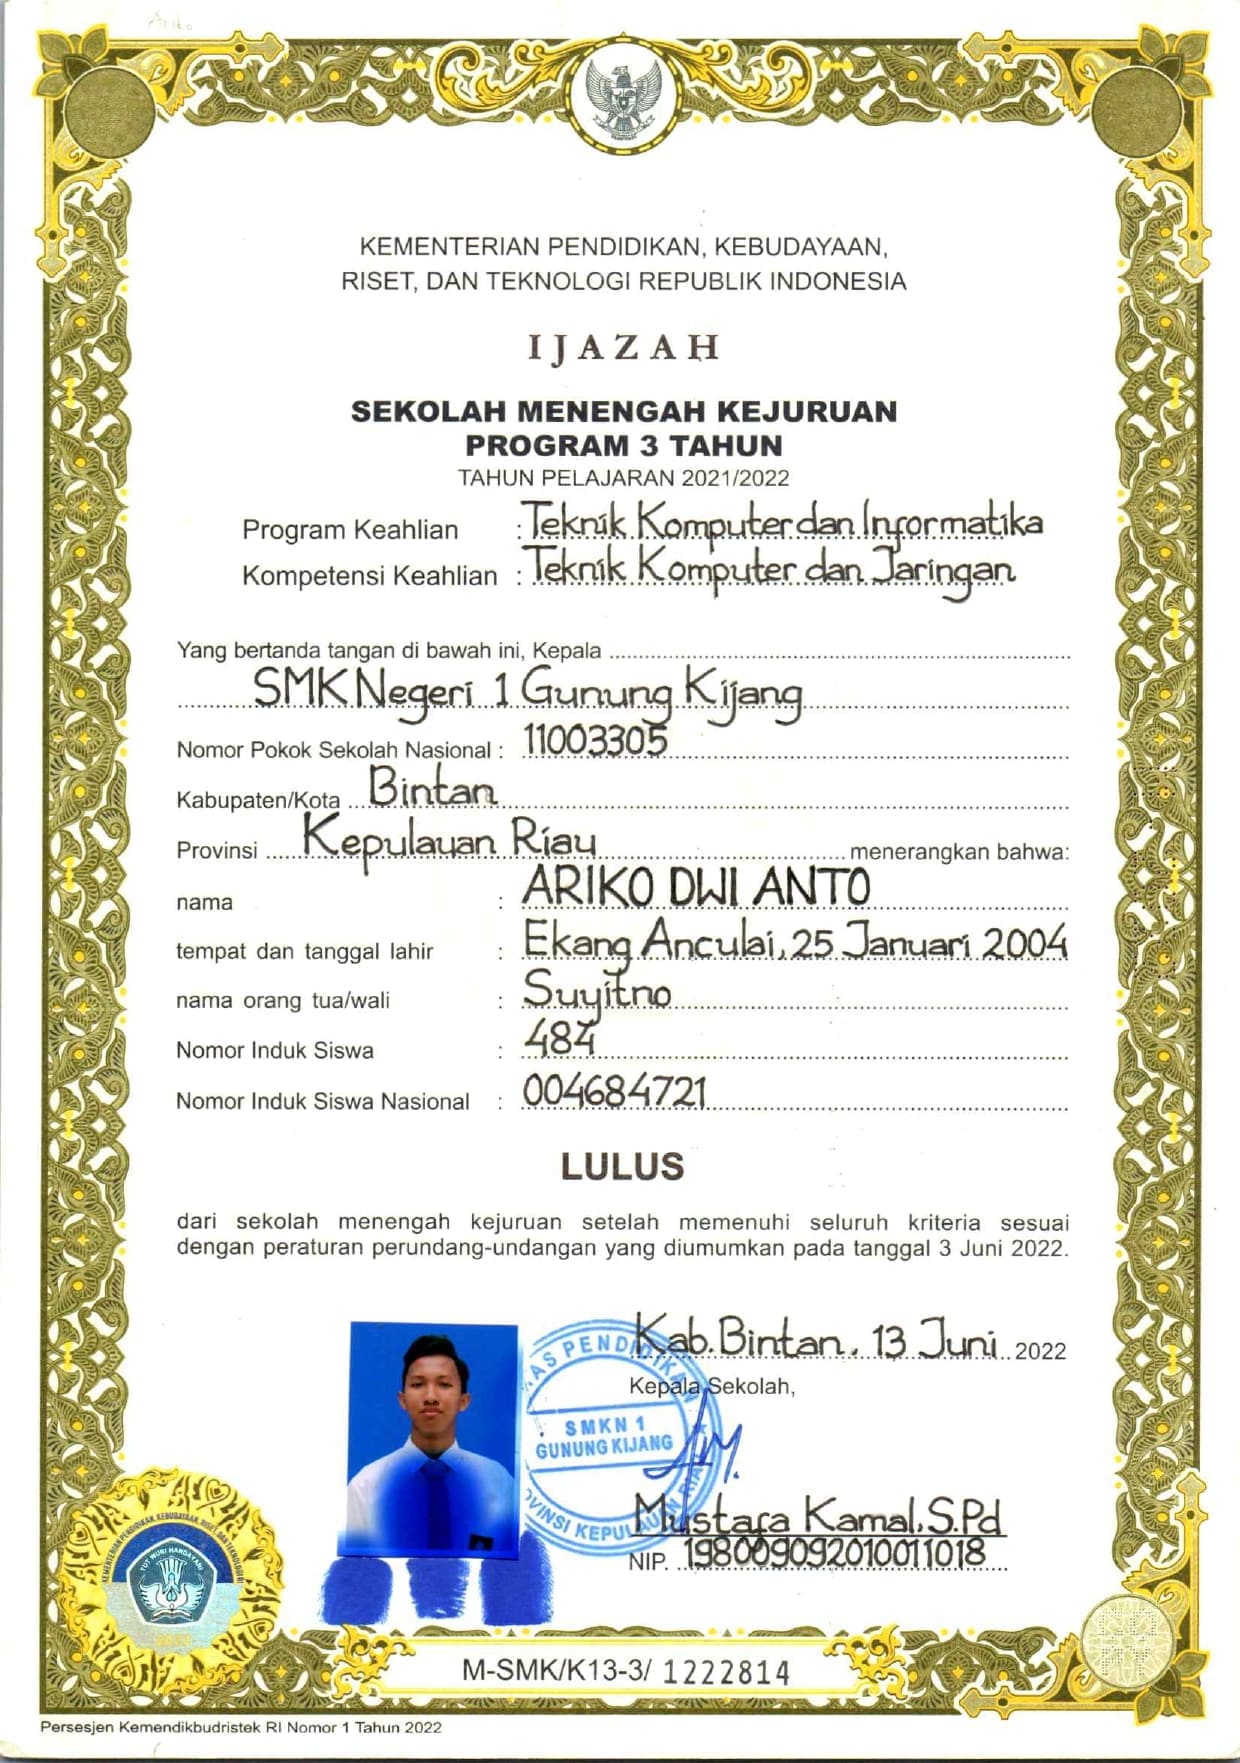 KEMENTERIAN PENDIDIKAN, KEBUDAYAAN,
RISET, DAN TEKNOLOGI REPUBLIK INDONESIA
IJAZAH
SEKOLAH MENENGAH KEJURUAN
PROGRAM 3 TAHUN
TAHUN PELAJARAN 2021/2022
Program Keahlian : Teknik Komputer dan Informatika
Kompetensi Keahlian : Teknik Komputer dan Jaringan
Yang bertanda tangan di bawah ini, Kepala
SMK Negeri 1 Gunung Kijang
Nomor Pokok Sekolah Nasional : 11003305
Kabupaten/Kota Bintan
Provinsi Kepulauan Riau menerangkan bahwa:
nama : ARIKO DWI ANTO
tempat dan tanggal lahir : Ekang Anculai, 25 Januari 2004
nama orang tua/wali : Suyitno
Nomor Induk Siswa : 484
Nomor Induk Siswa Nasional : 004684721
LULUS
dari sekolah menengah kejuruan setelah memenuhi seluruh kriteria sesuai
dengan peraturan perundang-undangan yang diumumkan pada tanggal 3 Juni 2022.
Kab. Bintan, 13 Juni 2022
Kepala Sekolah,
SMKN 1
GUNUNG KIJANG
Mustafa Kamal, S.Pd
NIP. 198009092010011018
TUT WURI HANDAYANI
M-SMK/K13-3/ 1222814
Persesjen Kemendikbudristek RI Nomor 1 Tahun 2022